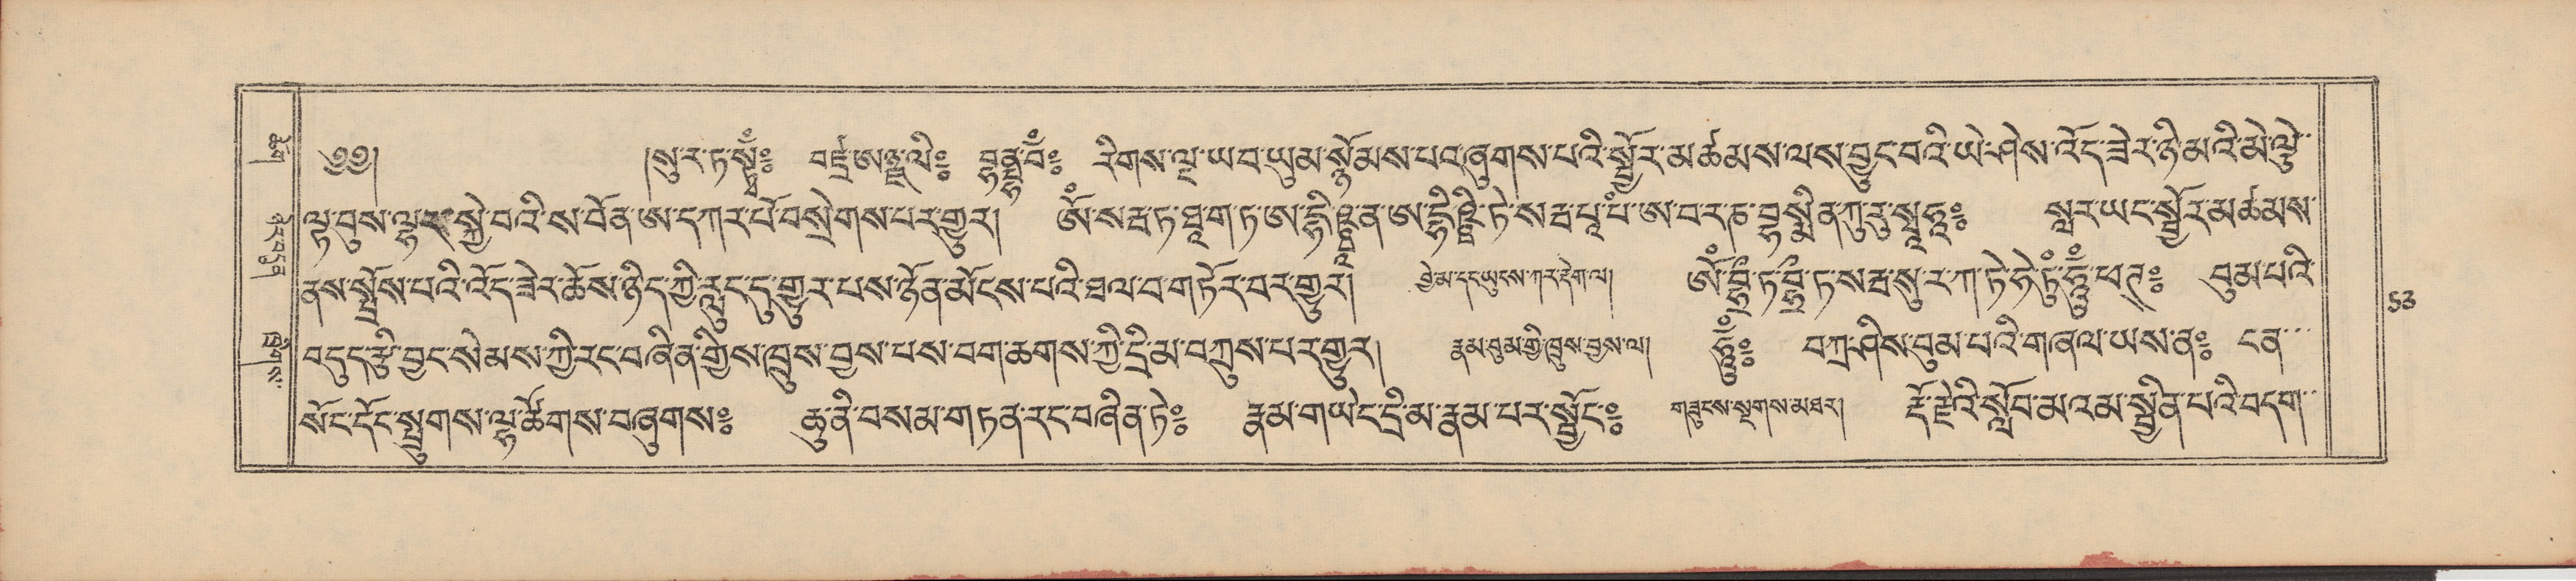 ༄༅། །སུ་ར་ཏ་སྟྭཾ༔ བཛྲ་ཨཉྫ་ལི༔ རིགས་ལྔ་ཡབ་ཡུམ་སྙོམས་པར་ཞུགས་པའི་སྦྱོར་མཚམས་ལས་བྱུང་བའི་ཡེ་ཤེས་འོད་ཟེར་ཉི་མའི་མེ་ལྕེ་
ལྟ་བུས་ལྷར་སྐྱེ་བའི་ས་བོན་ཨ་དཀར་པོ་བསྲེགས་པར་གྱུར། ཨོཾ་སརྦ་ཏ་ཐཱ་ག་ཏ་ སརྦ་པཱ་པཾ་ཨ་བ་ར་ཎ་བྷསྨིན་ཀུ་རུ་སྭཱཧཱ༔ སླར་ཡང་སྦྱོར་མཚམས་
ནས་སྤྲོས་པའི་འོད་ཟེར་ཆོས་ཉིད་ཀྱི་རླུང་དུ་གྱུར་པས་ཉོན་མོངས་པའི་ཐལ་བ་གཏོར་བར་གྱུར། བྱེ་མ་དང་ཡུངས་ཀར་རྡེག་ལ། བུམ་པའི་
བདུད་རྩི་བྱང་སེམས་ཀྱི་རང་བཞིན་གྱིས་ཁྲུས་བྱས་པས་བག་ཆགས་ཀྱི་དྲི་མ་བཀྲུས་པར་གྱུར། རྣམ་བུམ་གྱི་ཁྲུས་བྱས་ལ། ཧཱུྃ༔ བཀྲ་ཤིས་བུམ་པའི་གཞལ་ཡས་ན༔ ངན་
སོང་དོང་སྤྲུགས་ལྷ་ཚོགས་བཞུགས༔ ཆུ་ནི་བསམ་གཏན་རང་བཞིན་ཏེ༔ རྣམ་གཡེང་དྲི་མ་རྣམ་པར་སྦྱོང༔ གཟུངས་སྔགས་མཐར། རྡོ་རྗེའི་སློབ་མ་འམ་སྦྱིན་པའི་བདག་
53